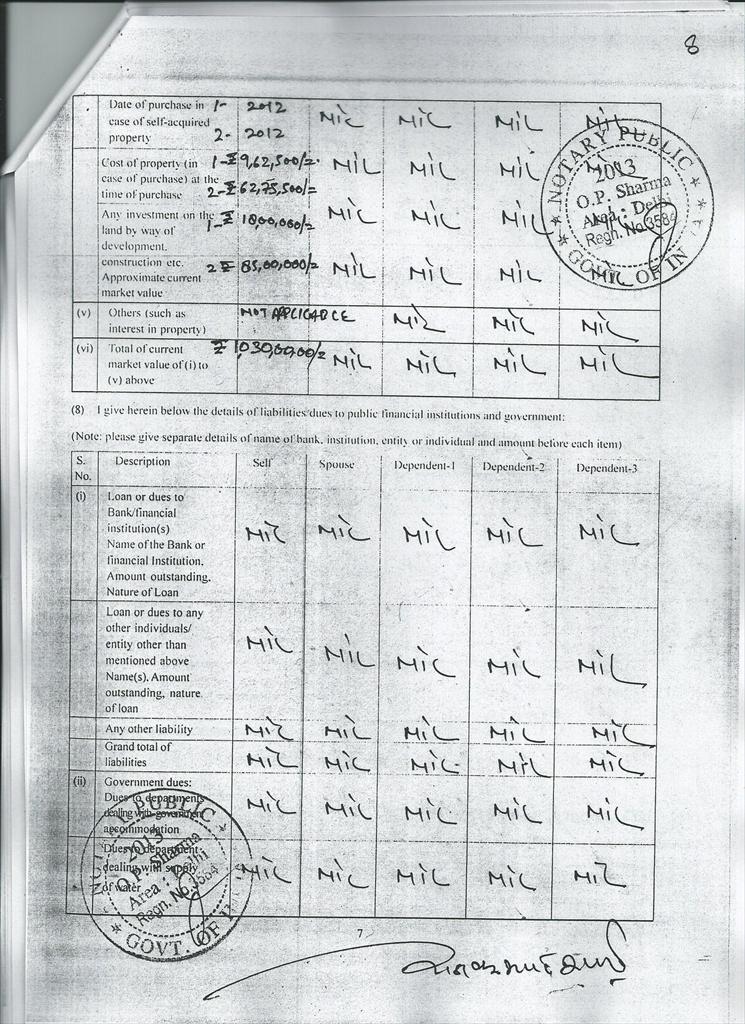 8
Date of purchase in case of self-acquired property 1- 2012 2- 2012 Nil Nil Nil Nil
Cost of property (in case of purchase) at the time of purchase 1- ₹ 9,62,500/= 2- ₹ 62,75,500/= Nil Nil Nil Nil
Any investment on the land by way of development, construction etc. 1- ₹ 18,00,000/= Nil Nil Nil
Approximate current market value 2 ₹ 85,00,000/= Nil Nil Nil Nil
(v) Others (such as interest in property) NOT APPLICABLE Nil Nil Nil
(vi) Total of current market value of (i) to (v) above Nil Nil Nil Nil
(8) I give herein below the details of liabilities/dues to public financial institutions and government:
(Note: please give separate details of name of bank, institution, entity or individual and amount before each item)
S. No. Description Self Spouse Dependent-1 Dependent-2 Dependent-3
(i) Loan or dues to Bank/financial institution(s)
Name of the Bank or financial Institution, Amount outstanding, Nature of Loan Nil Nil Nil Nil Nil
Loan or dues to any other individuals/ entity other than mentioned above
Name(s), Amount outstanding, nature of loan Nil Nil Nil Nil Nil
Any other liability Nil Nil Nil Nil Nil
Grand total of liabilities Nil Nil Nil Nil Nil
(ii) Government dues:
Dues to departments dealing with government accommodation Nil Nil Nil Nil Nil
Dues to department dealing with supply of water Nil Nil Nil Nil Nil
7
NOTARY PUBLIC
2013
O.P. Sharma
Area : Delhi
Regn. No.3584
GOVT. OF IN
PUBLIC
2013
O.P. Sharma
Area : Delhi
Regn. No.3584
GOVT. OF